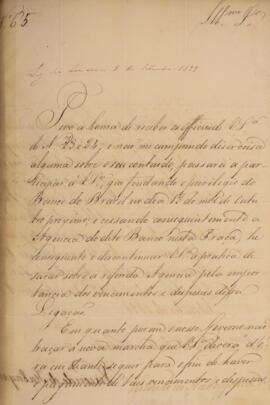 Nº 65
Illmo Sr.
Tive a honra de receber os officios de V.S.
de Nº 23 e 24, e não me cumprindo dizer cousa
alguma sobre o seu contendo, passarei a par-
ticipar a V.S. que findando o privilegio do
Banco do Brasil no dia 13 do mez de Outu-
bro proximo, e cessando consequintemente a
Agencia do dito Banco nesta Praça, he
consequente o descontinuar V.S. a pratica de
sacar sobre a referida Agencia pela impor-
tancia dos vencimentos e despezas dessa
Legação.
Em quanto porem o nosso Governo não
traçar a nova marcha que V.S. deverá d'o-
ra em diante seguir para o fim de haver
pagamento de seus vencimentos e despezas